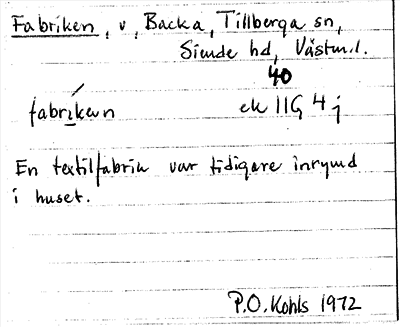 Fabriken, v, Backa, Tillberga sn,
Siende hd, Västm.l.
40
fabrikən
ek 11G 4j
En textilfabrik var tidigare inrymd
i huset.
P.O. Kohls 1972